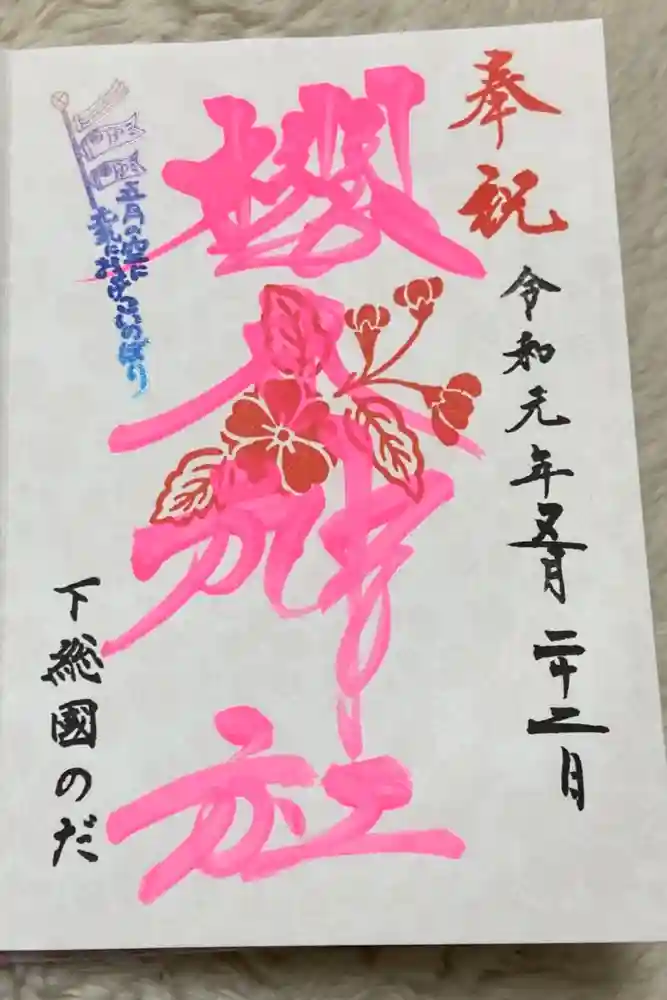 奉祝
令和元年五月二十二日
櫻木神社
五月の空に
元気におよげこいのぼり
下総國のだ